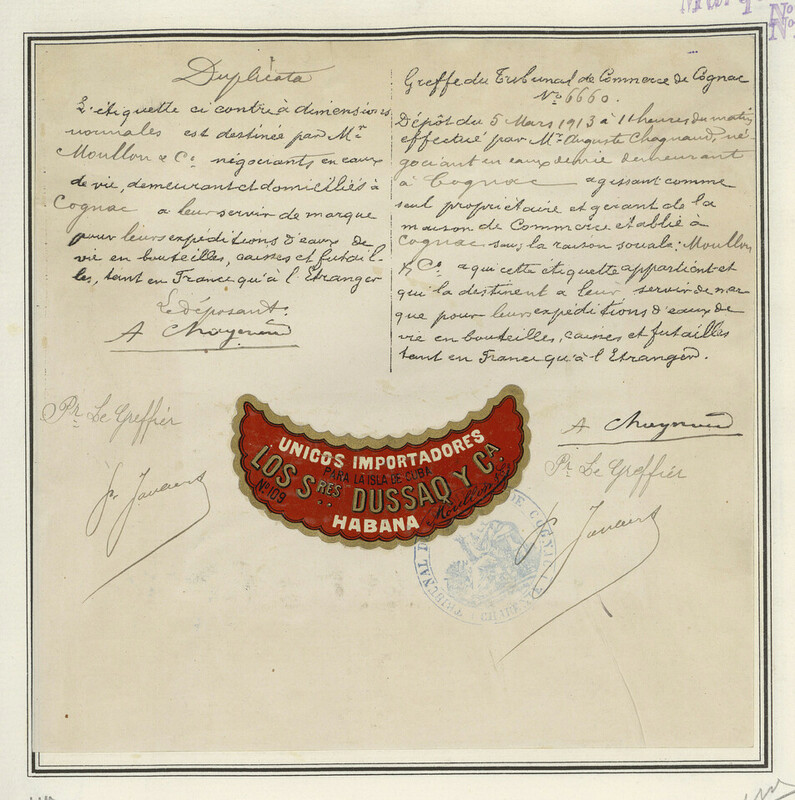 Nº
Nº
Duplicata
L'étiquette ci contre à dimensions
normales est destinée par Mr
Moullon & Cº négociants en eaux
de vie, demeurant et domiciliés à
Cognac a leur servir de marque
pour leurs expéditions d'eaux de
vie en bouteilles, caisses et futail-
les, tant en France qu'à l'Etranger
Le déposant.
Pr. Le Greffier
Greffe du Tribunal de Commerce de Cognac
Nº 6660.
Dépôt du 5 Mars 1913 à 11 heures du matin
effectué par Mr Auguste Chagnaud, né-
gociant en eaux de vie demeurant
à Cognac agissant comme
seul propriétaire et gérant de la
maison de Commerce établie à
Cognac sous la raison sociale: Moullon
& Cº a qui cette étiquette appartient et
qui la destinent a leur servir de mar
que pour leurs expéditions d'eaux de
vie en bouteilles, caisses et futailles
tant en France qu'à l'Etranger.
Pr. Le Greffier
UNICOS IMPORTADORES
PARA LA ISLA DE CUBA
LOS SRES DUSSAQ Y CA.
Nº 109
HABANA
Moullon & Cº
TRIBUNAL DE COGNAC